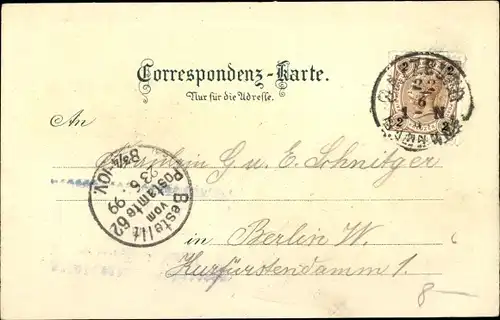 Correspondenz-Karte.
Nur für die Adresse.
An
Fräulein G u. E. Schnitzer
in Berlin W.
Kurfürstendamm 1.
8-
Bestellt
vom
Postamte 62
23.6.99
8¾-10V.